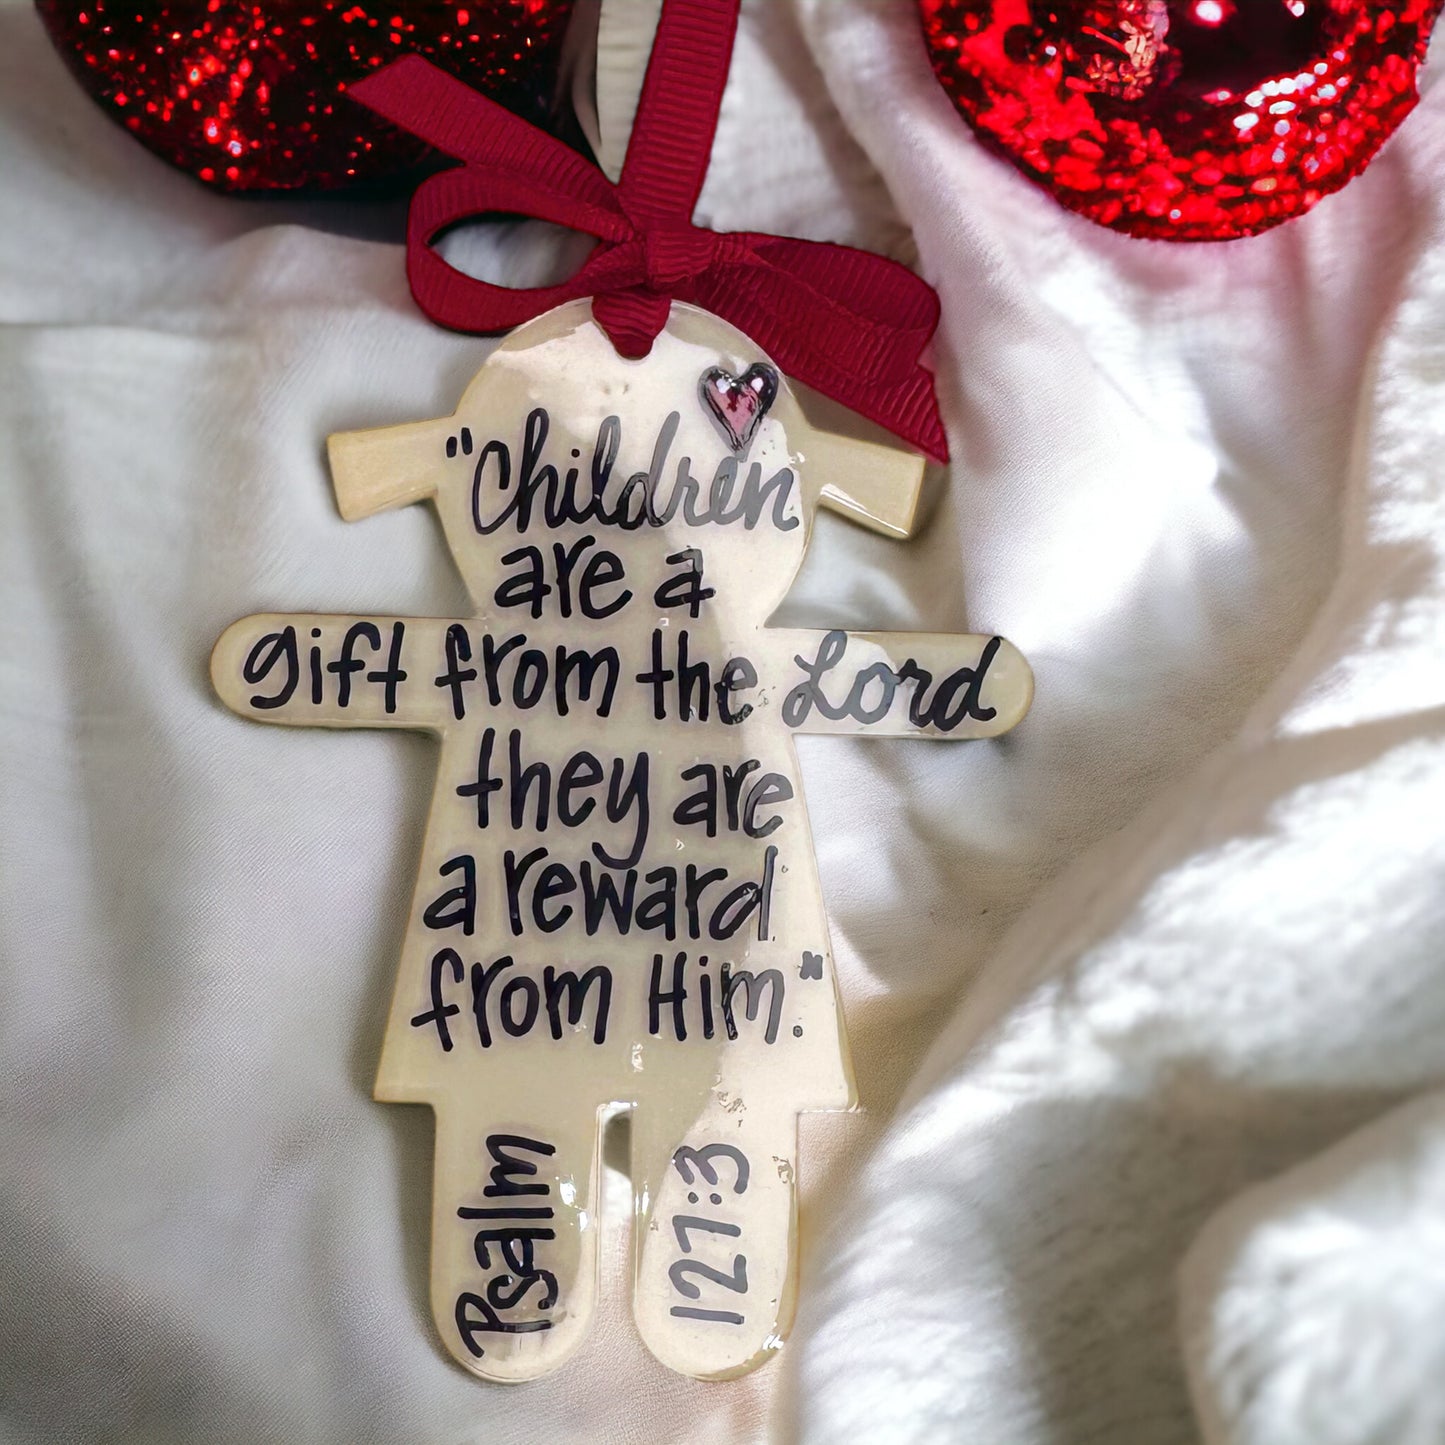 "Children
are a
gift from the Lord
they are
a reward
from Him."
Psalm
127:3